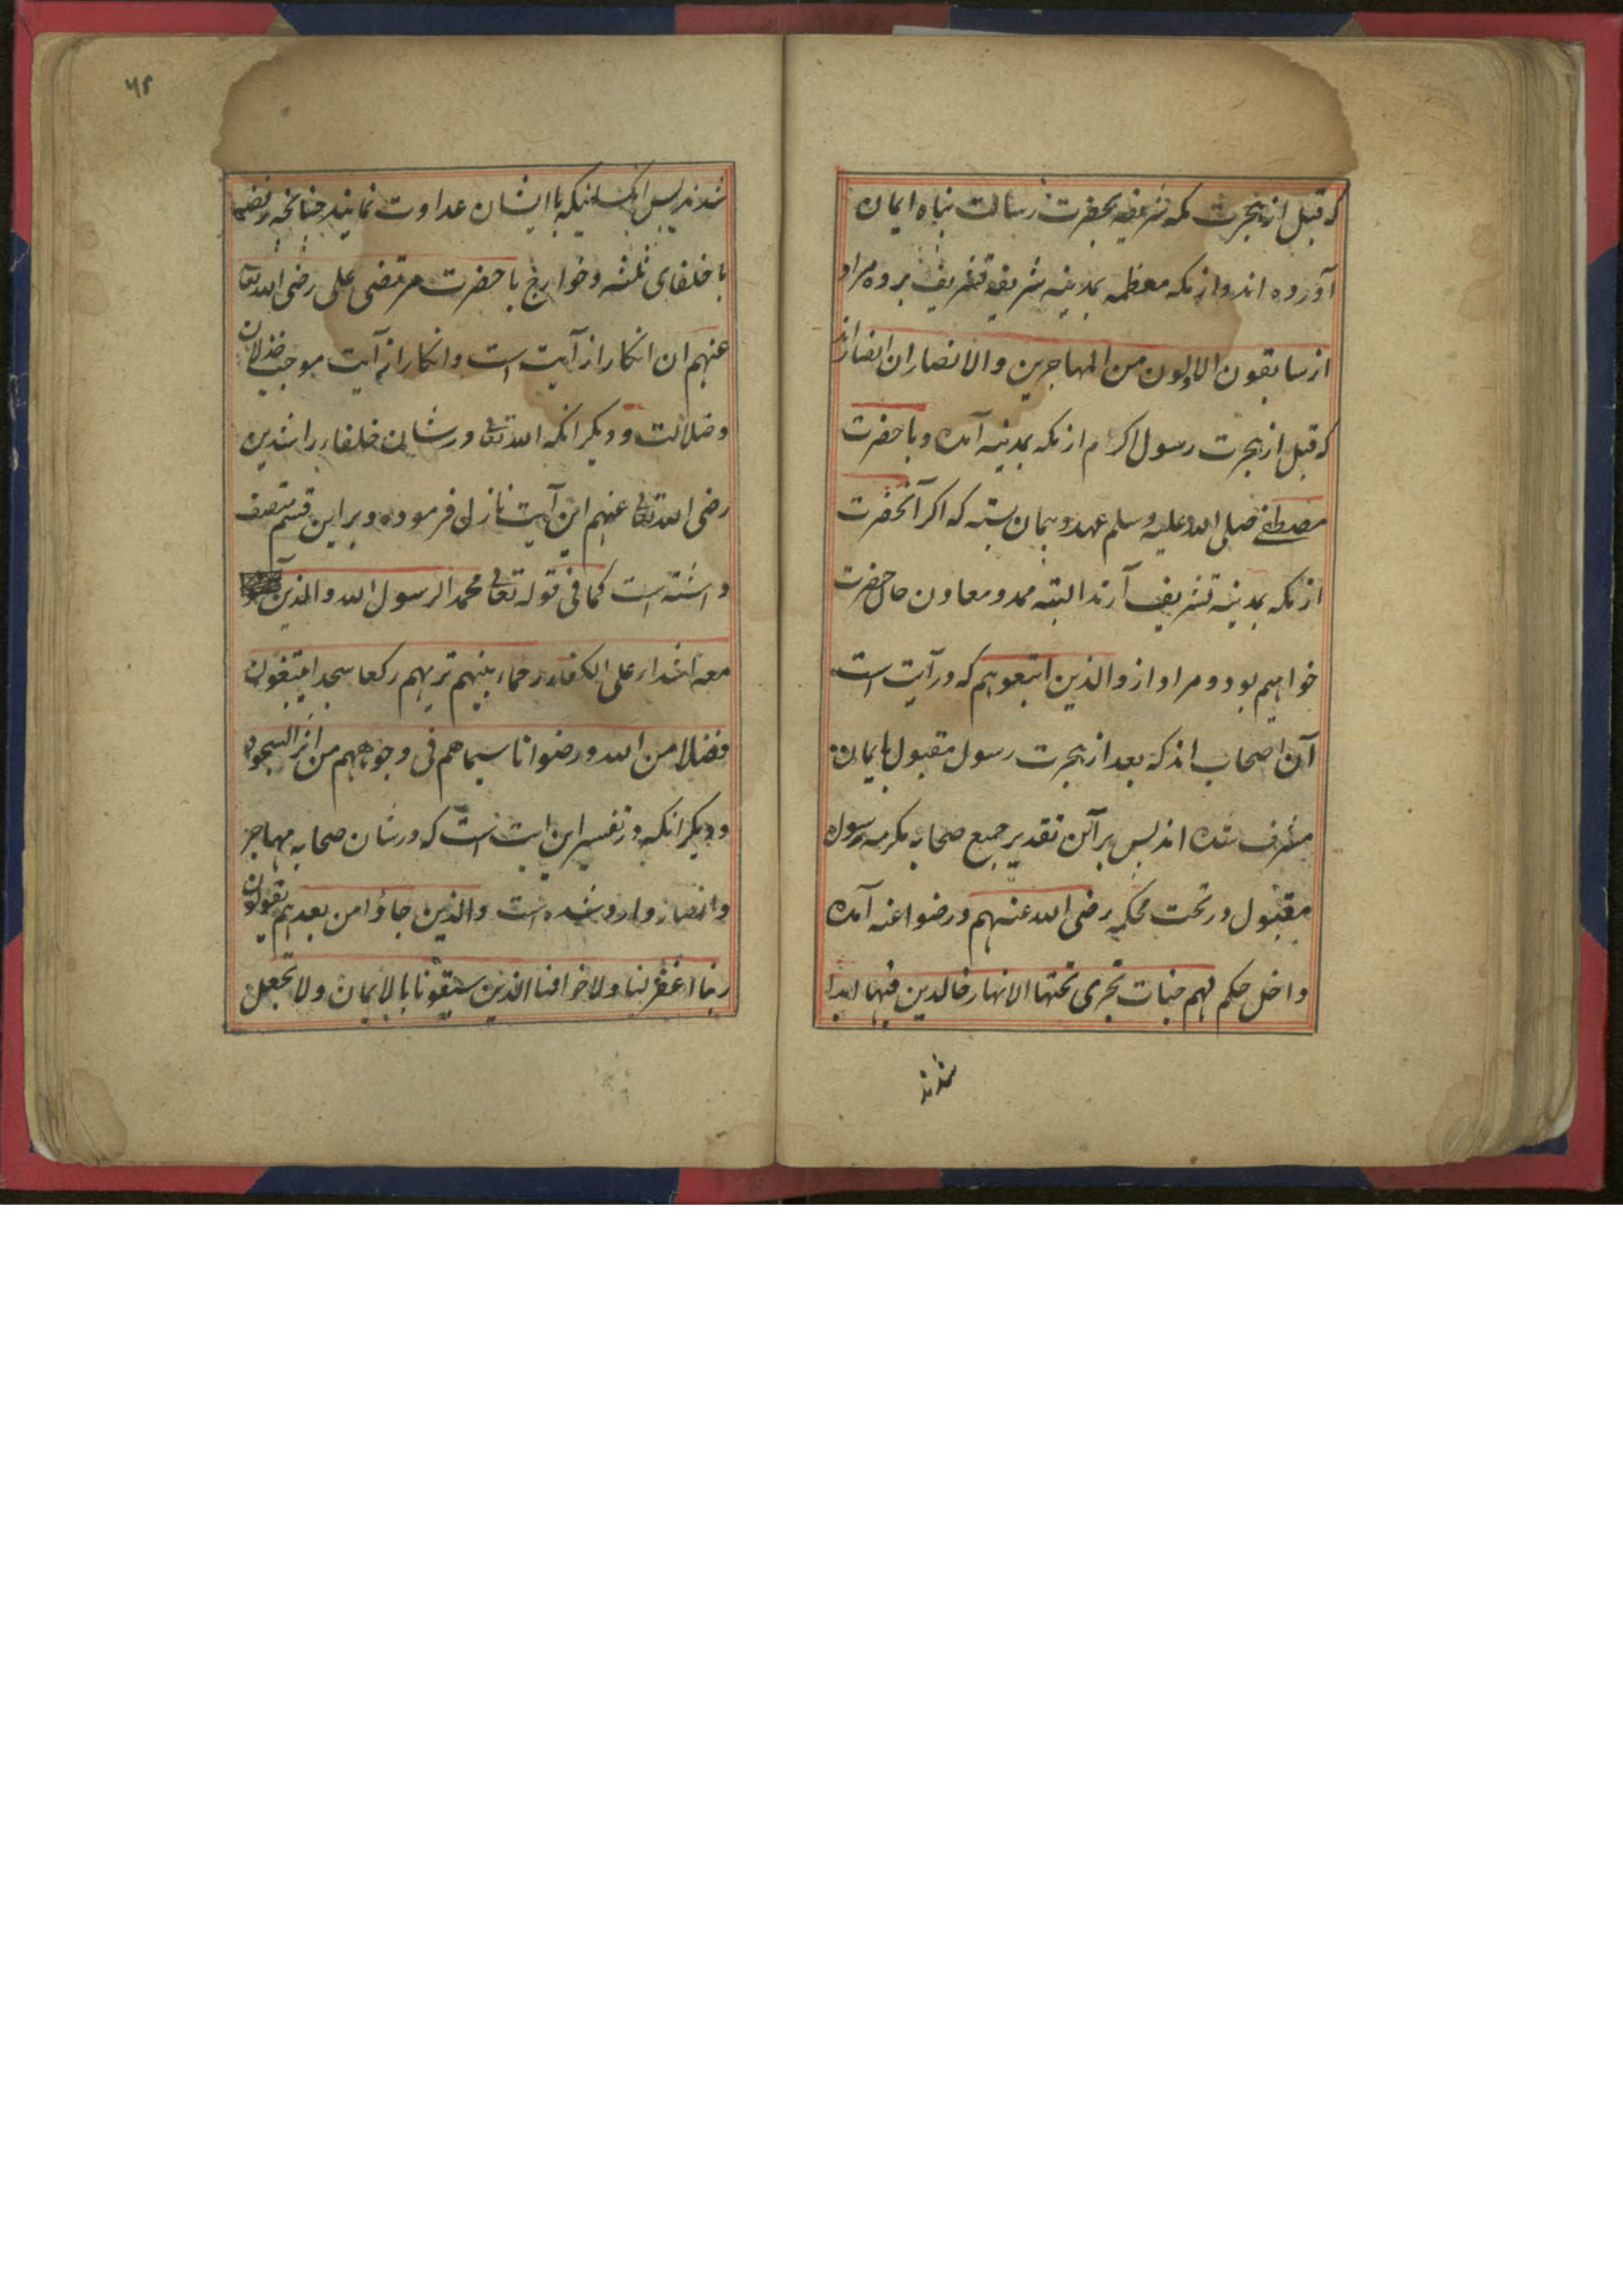 که قبل از هجرت مکه شریفه بحضرت رسالت پناه ایمان
آورده اند و از مکه معظمه بمدینه شریفه تشریف برده مراد
از سابقون الاولون من المهاجرین والانصار ان انصار اند
که قبل از هجرت رسول اکرم از مکه بمدینه آمده و با حضرت
مصطفے صلی الله علیه وسلم عهد و پیمان بسته که اگر آنحضرت
از مکه بمدینه تشریف آرند البته ممد و معاون حال حضرت
خواهیم بود و مراد از والذین اتبعوهم که در آیت است
آن اصحاب اند که بعد از هجرت رسول مقبول بایمان
مشرف شده اند پس بر آن تقدیر جمیع صحابه مکرمه رسول
مقبول در تحت محکمه رضی الله عنهم و رضوا عنه آمده
داخل حکم لهم جنات تجری تحتها الانهار خالدین فیها ابدا
شدند
۶۲
شدند پس انکسانیکه با ایشان عداوت نمایند چنانچه رفضیه
با خلفای ثلثه و خوارج با حضرت مرتضی علی رضی الله تعا
عنهم ان انکار از آیت است و انکار از آیت موجب خذلان
و ضلالت و دیگر انکه الله تعالی در شان خلفاء راشدین
رضی الله تعالی عنهم این آیت نازل فرموده و بر این قسم متصف
داشته است کما فی قوله تعالی محمد الرسول الله والذین
معه اشداء علی الکفار رحماء بینهم تریهم رکعا سجدا یبتغون
فضلا من الله ورضوانا سیماهم فی وجوههم من اثر السجود
و دیگر انکه در تفسیر این ایت است که در شان صحابه مهاجر
و انصار وارد شده است والذین جاؤا من بعدهم یقولون
ربنا اغفر لنا ولاخواننا الذین سبقونا بالایمان ولا تجعل